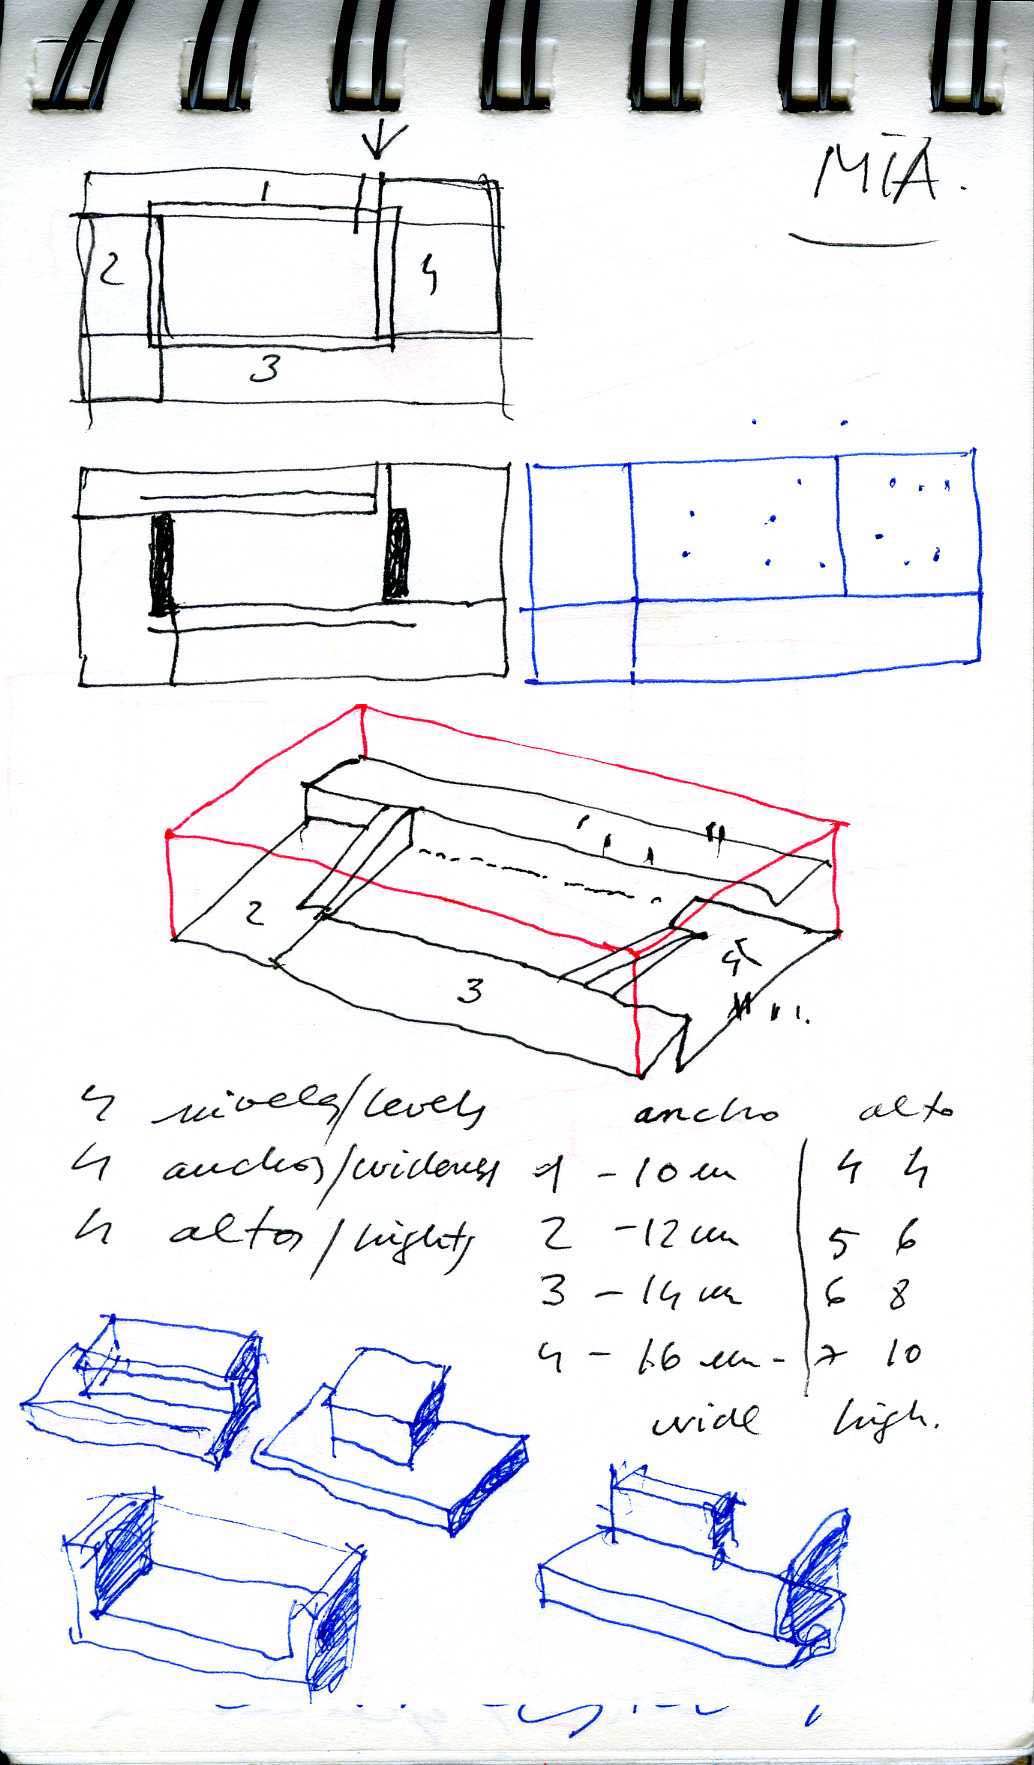 MIA.
1
2
4
3
2
4
3
4 niveles/levels
4 anchos/widenes
4 altos/hights
ancho alto
1 - 10 cm 4 4
2 - 12 cm 5 6
3 - 14 cm 6 8
4 - 16 cm - 7 10
wide high.